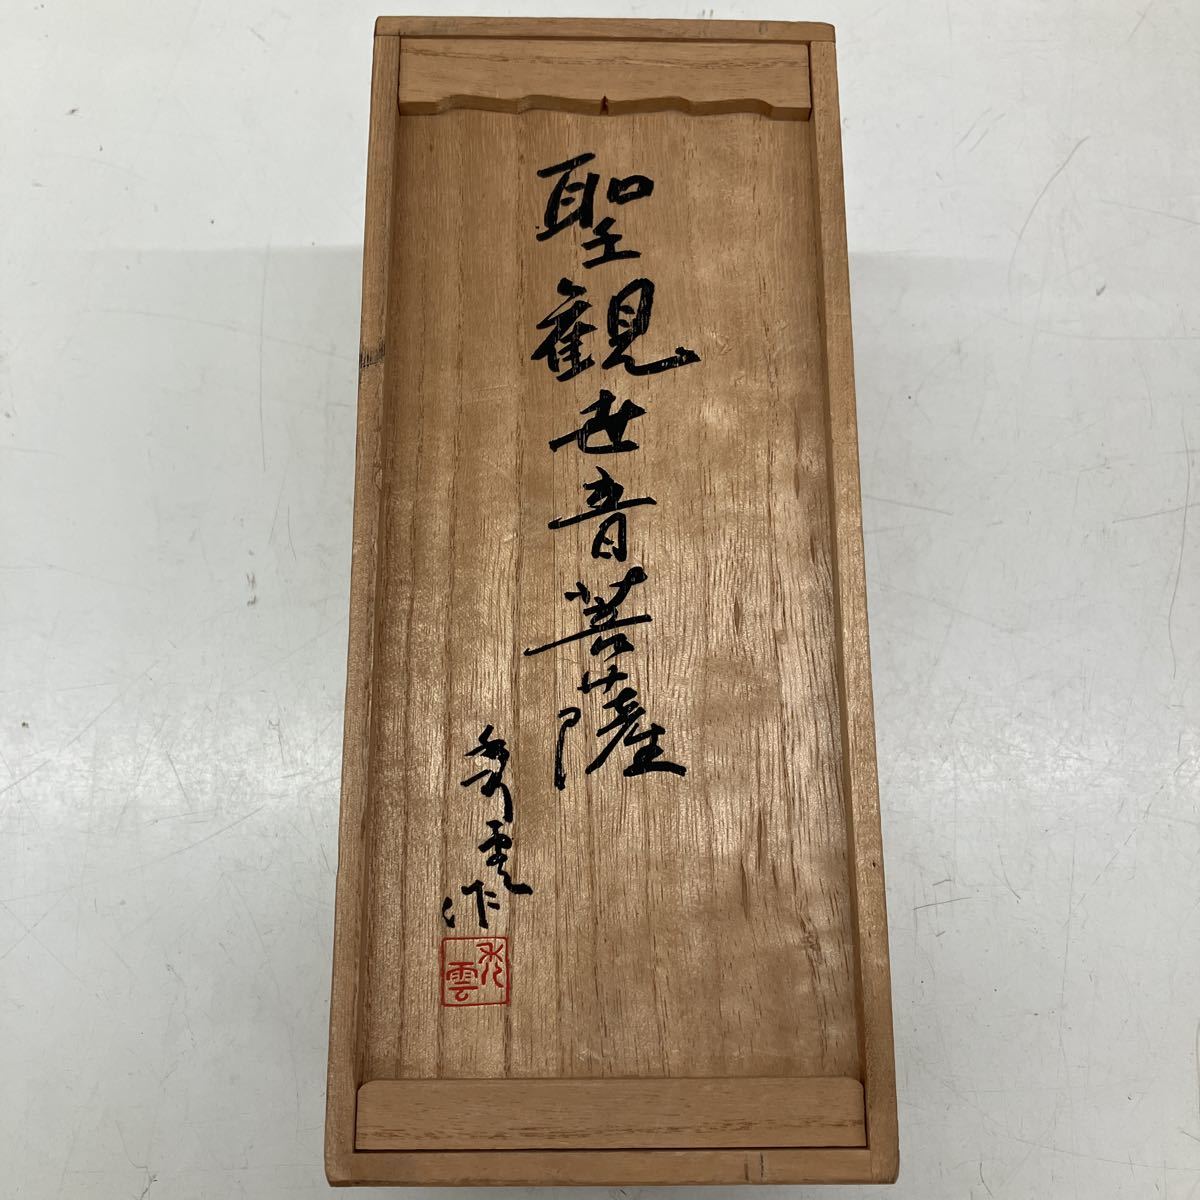 聖観世音菩薩
秀雲作
秀雲